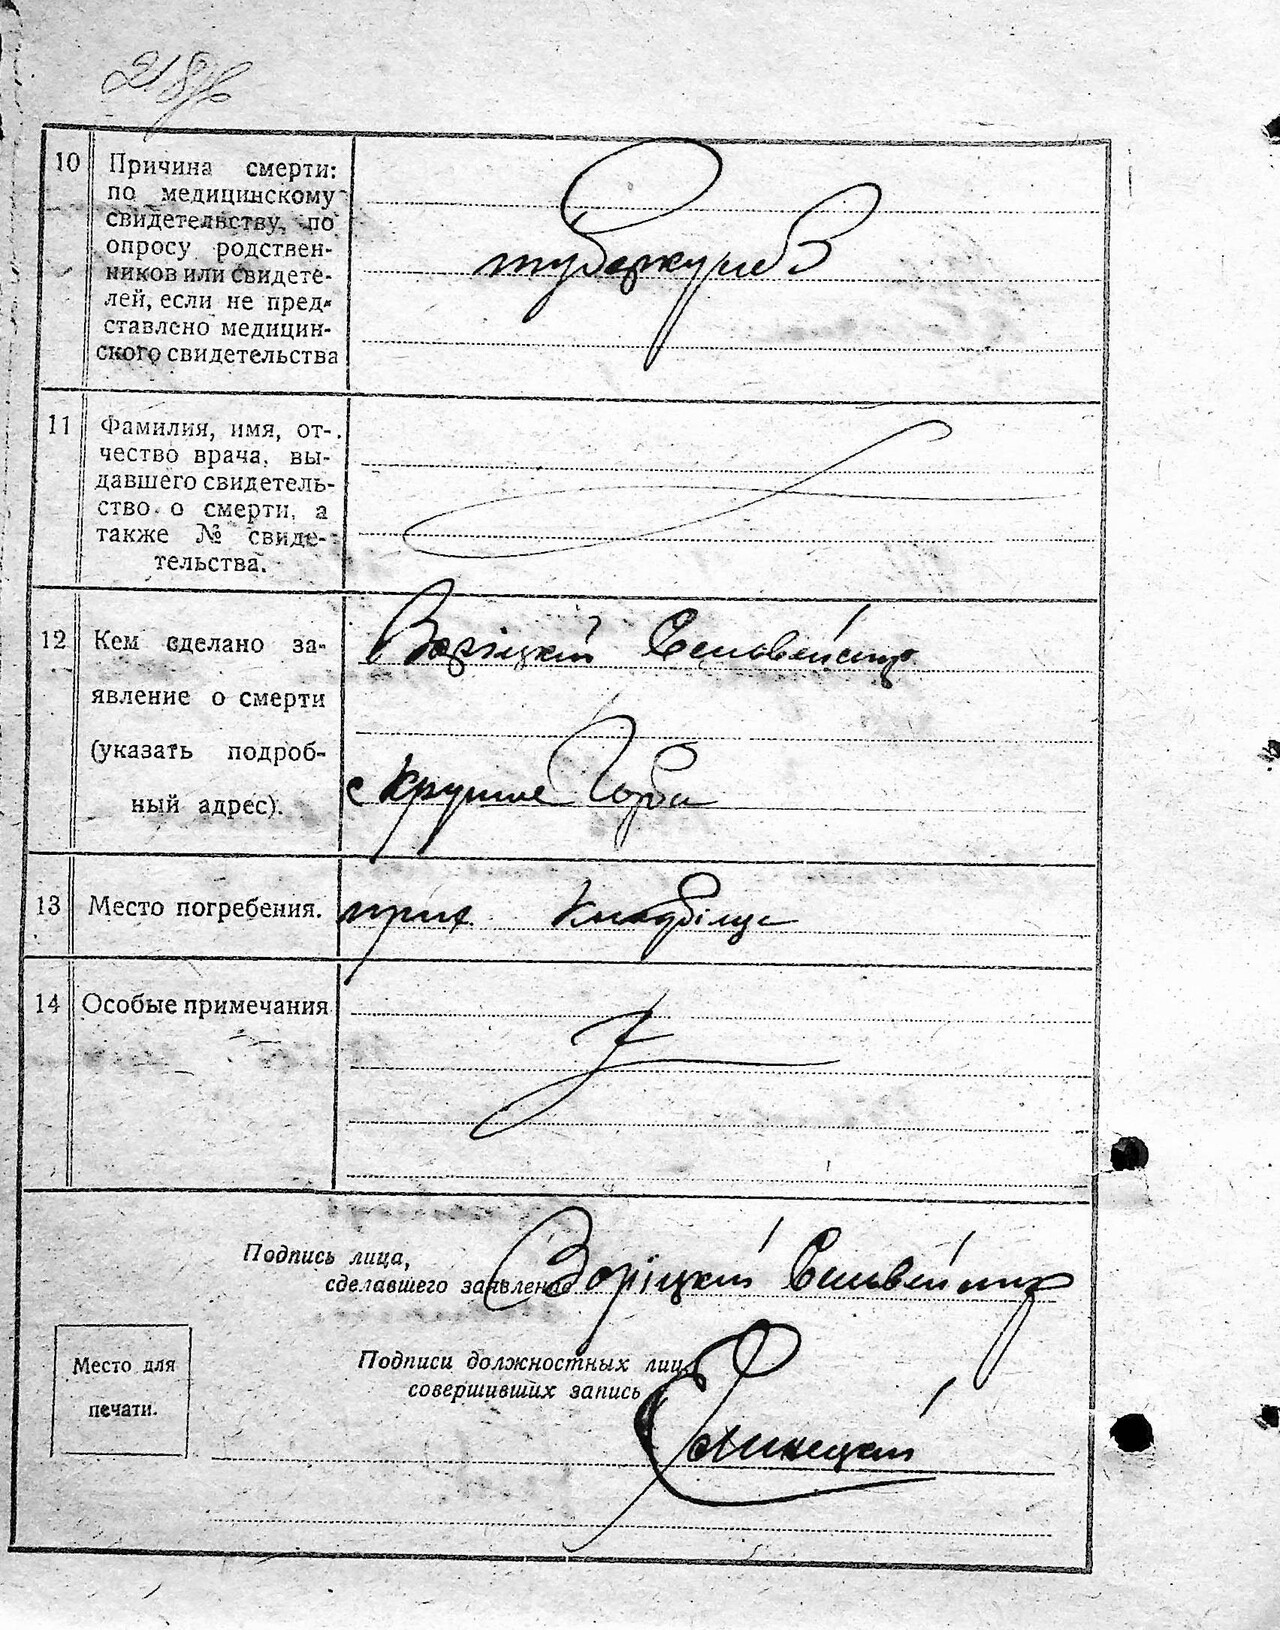 218
10 Причина смерти: по медицинскому свидетельству, по опросу родственников или свидетелей, если не представлено медицинского свидетельства
туберкульоз
11 Фамилия, имя, отчество врача, выдавшего свидетельство о смерти, а также № свидетельства.
12 Кем сделано заявление о смерти (указать подробный адрес).
Зоріцкій Сельвейстр
с Круглые
13 Место погребения.
прих. Кладбіще
14 Особые примечания
Подпись лица,
сделавшего заявление
Зоріцкій Сельвейстр
Место для
печати.
Подписи должностных лиц,
совершивших запись